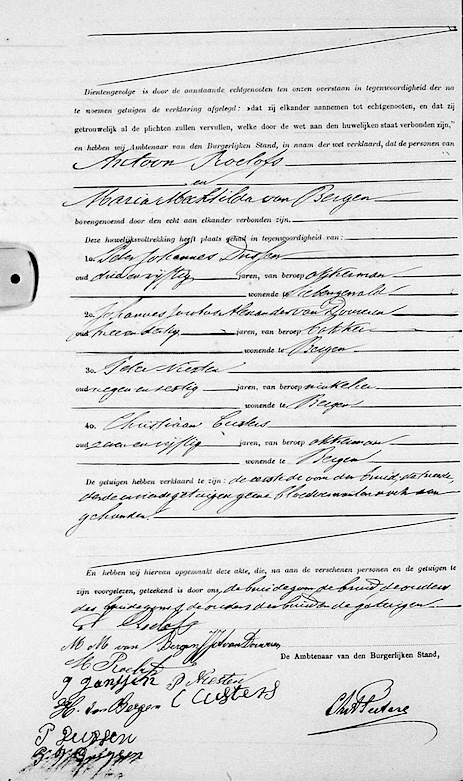 Dientengevolge is door de aanstaande echtgenooten ten onzen overstaan in tegenwoordigheid der na
te noemen getuigen de verklaring afgelegd: »dat zij elkander aannemen tot echtgenooten, en dat zij
getrouwelijk al de plichten zullen vervullen, welke door de wet aan den huwelijken staat verbonden zijn,"
en hebben wij Ambtenaar van den Burgerlijken Stand, in naam der wet verklaard, dat de personen van
Antoon Roelofs
en
Maria Mechtilda van Bergen
bovengenoemd door den echt aan elkander verbonden zijn.
Deze huwelijksvoltrekking heeft plaats gehad in tegenwoordigheid van:
1o. Peter Johannes
oud drie en vijftig jaren, van beroep akkerman
wonende te Siebengewald
2o. Johannes Alexander van Douveren
oud twee en dertig jaren, van beroep bakker
wonende te Bergen
3o. Peter Niesten
oud negen en zestig jaren, van beroep winkelier
wonende te Bergen
4o. Christiaan Custers
oud zeven en vijftig jaren, van beroep akkerman
wonende te Bergen
De getuigen hebben verklaard te zijn: de eerste van den bruid, de tweede,
derde en vierde getuigen geene bloedverwanten noch aan
gehuwden.
En hebben wij hiervan opgemaakt deze akte, die, na aan de verschenen personen en de getuigen te
zijn voorgelezen, geteekend is door ons, de bruidegom de bruid de ouders
des bruidegoms de ouders der bruid en de getuigen.
Roelofs
M M van Bergen van Douveren
De Ambtenaar van den Burgerlijken Stand,
M
g Janssen P Niesten
H. van Bergen C Custers
P